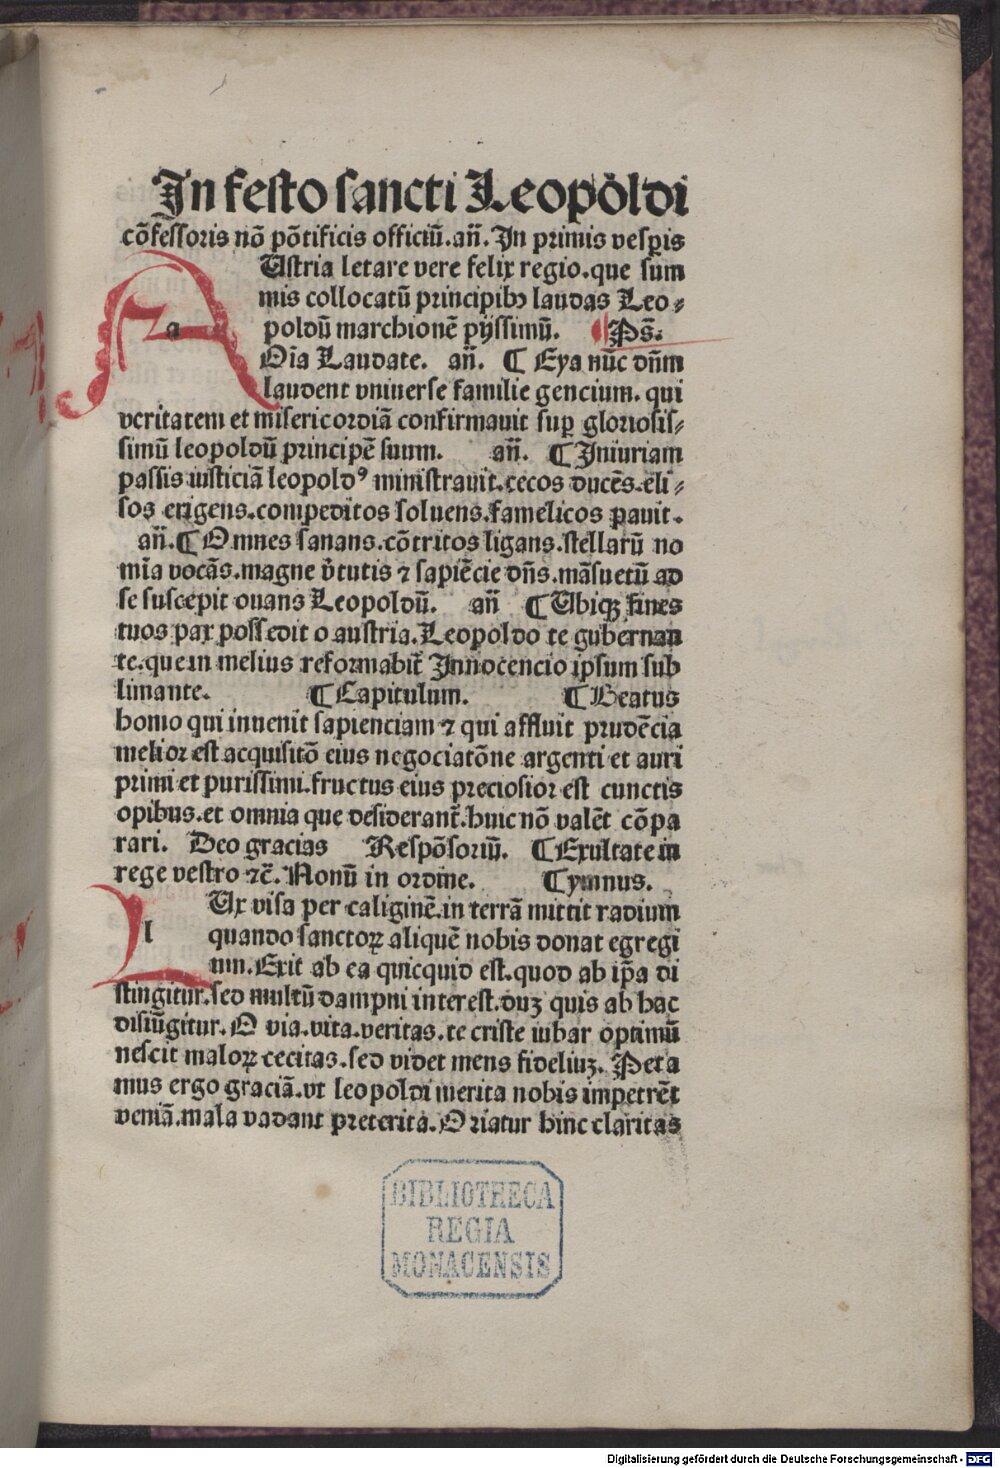 In festo sancti Leopoldi
cõfessoris nõ põtificis officiũ.añ. In primis vesꝑis
AUstria letare vere felix regio.que sum
mis collocatũ principibꝰ laudas Leo⸗
poldũ marchionẽ pijssimũ. Ps̃.
Oĩa Laudate. añ. ¶ Eya nũc dñm
laudent vniuerse familie gencium. qui
veritatem et misericordiã confirmauit suꝑ gloriosis⸗
simũ leopoldũ principẽ suum. añ. ¶ Iniuriam
passis iusticiã leopoldꝰ ministrauit.cecos ducẽs.eli⸗
sos erigens.compeditos soluens.famelicos pauit.
añ. ¶ Omnes sanans.cõtritos ligans.stellarũ no
mĩa vocãs.magne v̾tutis ⁊ sapiẽcie dñs.mãsuetũ ad
se suscepit ouans Leopoldũ. añ ¶ Ubiqꝫ fines
tuos pax possedit o austria.Leopoldo te gubernan
te.que in melius reformabit̃ Innocencio ipsum sub
limante. ¶ Capitulum. ¶ Beatus
homo qui inuenit sapienciam ⁊ qui affluit prudẽcia
melior est acquisitõ eius negociatõne argenti et auri
primi et purissimi.fructus eius preciosior est cunctis
opibus.et omnia que desiderant̃.huic nõ valẽt cõpa
rari. Deo gracias Respõsoriũ. ¶ Exultate in
rege vestro ⁊c̃. Nonũ in ordine. Cymnus.
lUx visa per caliginẽ.in terrã mittit radium
quando sanctoꝝ aliquẽ nobis donat egregi
um.Exit ab ea quicquid est.quod ab ip̃a di
stingitur.sed multũ dampni interest.duꝫ quis ab hac
disiũgitur. O via.vita.veritas.te criste iubar optimũ
nescit maloꝝ cecitas.sed videt mens fideliuꝫ. Peta
mus ergo graciã.vt leopoldi merita nobis impetrẽt
veniã.mala vadant preterita. Oriatur hinc claritas
BIBLIOTHECA
REGIA
MONACENSIS
Digitalisierung gefördert durch die Deutsche Forschungsgemeinschaft - DFG